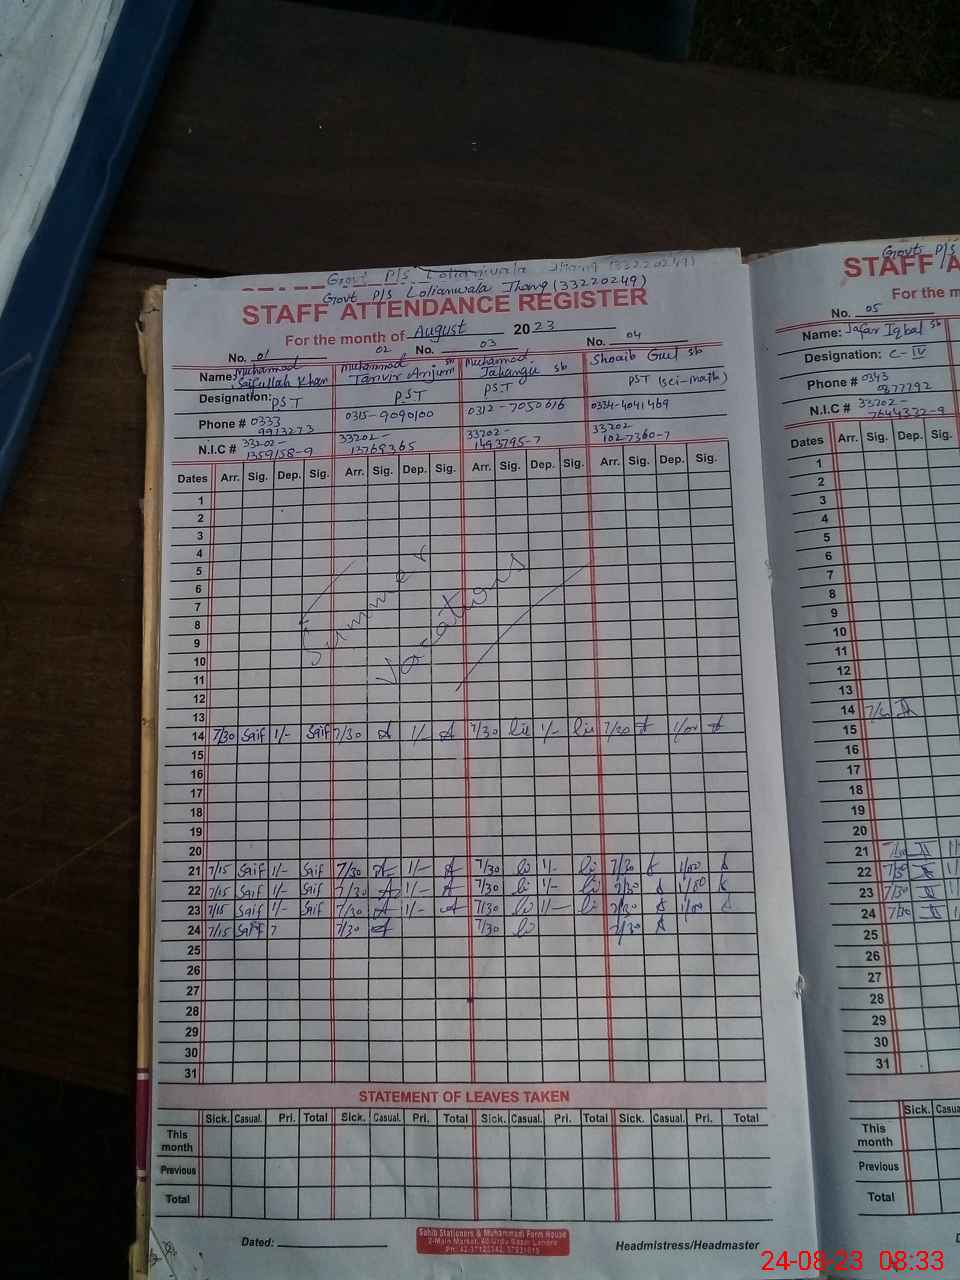 Govt P/S Lolianwala Jhang (33220249)
Govt P/S Lolianwala Jhang (33220249)
STAFF ATTENDANCE REGISTER
For the month of August 2023
No. 01 02 No. 03 No. 04
Name: Muhammad Saifullah Khan Muhammad Tanvir Anjum sb Muhammad Jahangir sb Shoaib Gul sb
Designation: PST PST PST PST (sci-math)
Phone # 0333 9913273 0315-9090100 0312-7050616 0334-4041469
N.I.C # 33202-1359158-9 33202-13769365 33202-1493795-7 33202 1027360-7
Dates Arr. Sig. Dep. Sig. Arr. Sig. Dep. Sig. Arr. Sig. Dep. Sig. Arr. Sig. Dep. Sig.
1
2
3
4
5
6
7
8
9
10
11
12
13
Summer
Vacations
14 7/30 Saif 1/- Saif 7/30 1/- 7/30 1/- 7/30 1/00
15
16
17
18
19
20
21 7/15 Saif 1/- Saif 7/30 1/- 7/30 1/- 7/30 1/00
22 7/15 Saif 1/- Saif 7/30 1/- 7/30 1/- 7/30 1/00
23 7/15 Saif 1/- Saif 7/30 1/- 7/30 1/- 7/30 1/00
24 7/15 Saif 7 7/30 7/30 7/30
25
26
27
28
29
30
31
STATEMENT OF LEAVES TAKEN
Sick. Casual. Pri. Total Sick. Casual. Pri. Total Sick. Casual. Pri. Total Sick. Casual. Pri. Total
This month
Previous
Total
Dated:
Sohib Stationers & Muhammadi Form House
2-Main Market, 40-Urdu Bazar Lahore
Headmistress/Headmaster
Govt P/S
STAFF A
For the m
No. 05
Name: Jafar Iqbal sb
Designation: C-IV
Phone # 0343 0377792
N.I.C # 33202-7644372-9
Dates Arr. Sig. Dep.
1
2
3
4
5
6
7
8
9
10
11
12
13
14 7/30
15
16
17
18
19
20
21
22 7/30
23 7/30
24 7/30
25
26
27
28
29
30
31
Sick. Casua
This month
Previous
Total
24-08-23 08:33